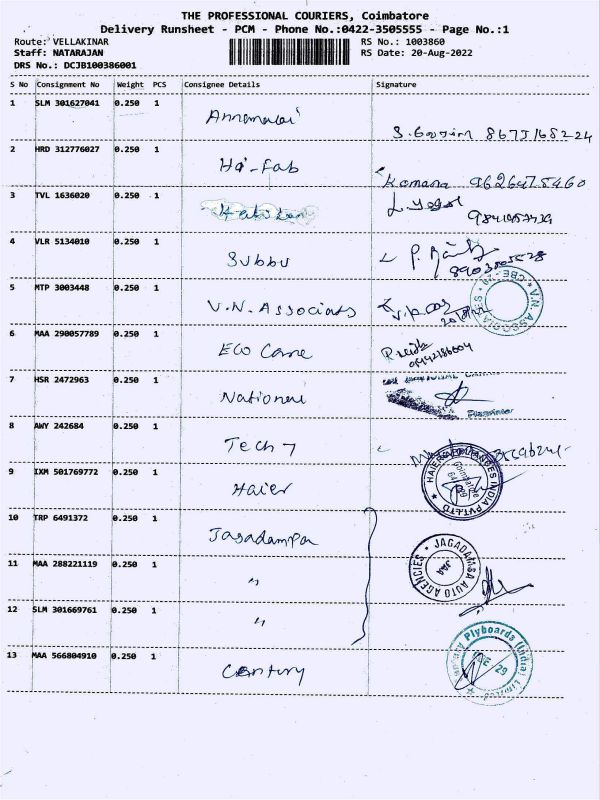 THE PROFESSIONAL COURIERS, Coimbatore
Delivery Runsheet - PCM - Phone No.:0422-3505555 - Page No.:1
Route: VELLAKINAR RS No.: 1003860
Staff: NATARAJAN RS Date: 20-Aug-2022
DRS No.: DCJB100386001
S No Consignment No Weight PCS Consignee Details Signature
1 SLM 301627041 0.250 1 Annamalai
2 HRD 312776027 0.250 1 Hai-fab
3 TVL 1636020 0.250 1
4 VLR 5134010 0.250 1 Subbu
5 MTP 3003448 0.250 1 V.N. Associats V.N. ASSOCIATES CBE - 29
6 MAA 290057789 0.250 1 Eco Care
7 HSR 2472963 0.250 1 National
8 AWY 242684 0.250 1 Tech 7
9 IXM 501769772 0.250 1 Haier HAIER APPLIANCES INDIA PVT.LTD
10 TRP 6491372 0.250 1 Jagadampa
11 MAA 288221119 0.250 1 " JAGADAMBA AUTO AGENCIES JAA
12 SLM 301669761 0.250 1 "
13 MAA 566804910 0.250 1 Century Century Plyboards (India) Limited CBE - 29